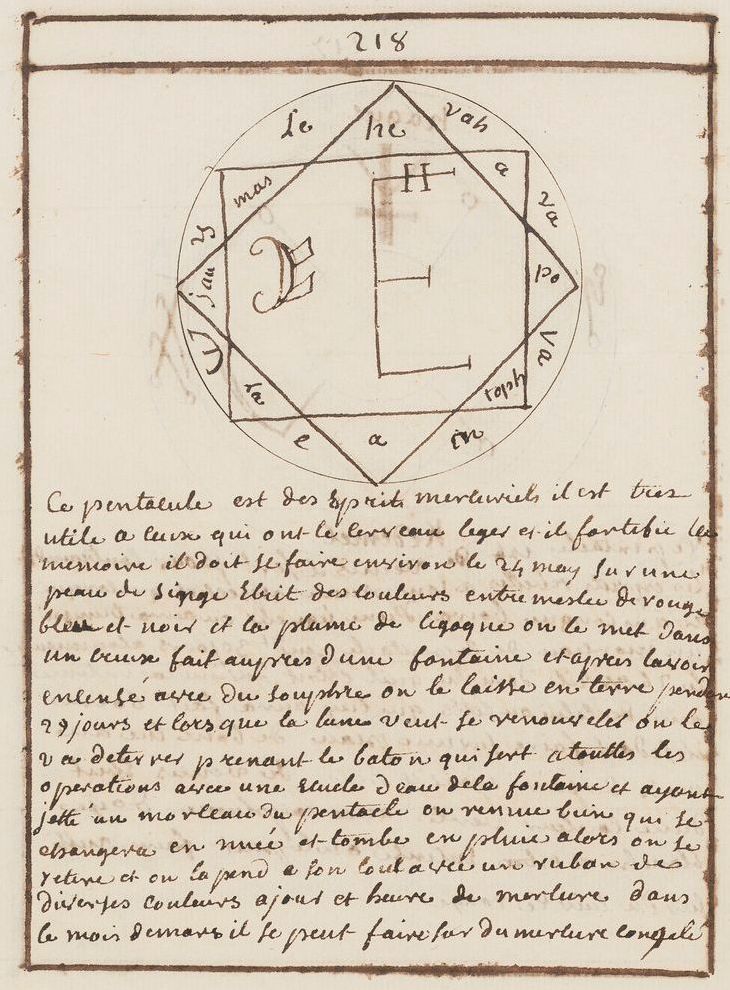 218
le he vah
mas a za
jau po
va
ra toph
e a in
H
E
Ce pentacule est des Esprits mercuriels il est tres
utile a ceux qui ont le cerveau leger et il fortifie la
memoire il doit se faire environ le 24 may sur une
peau de singe Ecrit des couleurs entremeslee de rouge
bleu et noir et la plume de cigogne on le met dans
un creux fait aupres dune fontaine et apres lavoir
encensé avec du souphre on le laisse en terre pendan
29 jours et lorsque la lune veut se renouveler on le
va deterrer prenant le baton qui sert atouttes les
operations avec une Ecuele deau dela fontaine et ayant
jetté un morceau du pentacle on remue bien qui se
changera en nuée et tombe en pluie alors on se
retire et on la pend a son coul avec un ruban de
diverses couleurs a jour et heure de mercure dans
le mois demars il se peut faire sur du mercure congelé